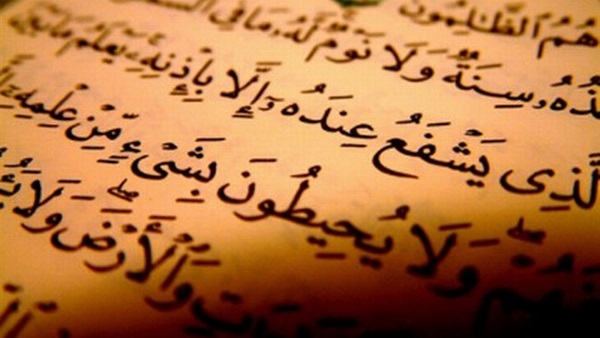 هُمُ ٱلظَّٰلِمُونَ
ذُهُۥ سِنَةٌ وَلَا نَوْمٌ لَّهُۥ مَا فِى ٱلسَّ
لَّذِى يَشْفَعُ عِندَهُۥٓ إِلَّا بِإِذْنِهِۦ يَعْلَمُ مَا بَيْنَ
فَهُمْ ۖ وَلَا يُحِيطُونَ بِشَىْءٍ مِّنْ عِلْمِهِۦٓ
وَٰتِ وَٱلْأَرْضَ ۖ وَلَا